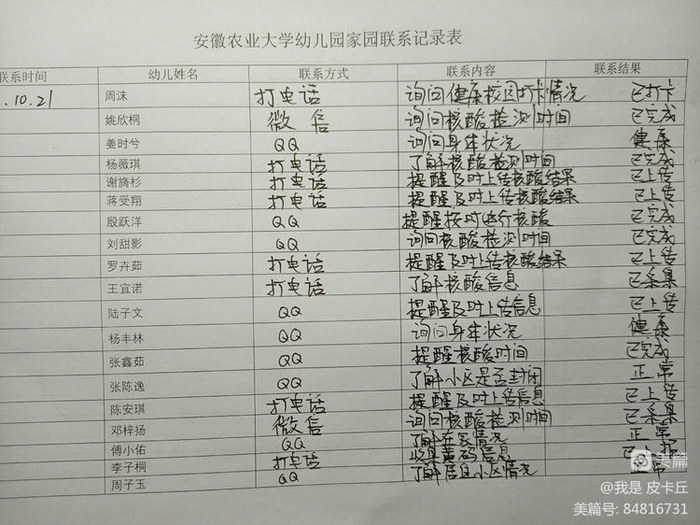 安徽农业大学幼儿园家园联系记录表
联系时间 幼儿姓名 联系方式 联系内容 联系结果
.10.21 周沫 打电话 询问健康校园打卡情况 已打卡
姚欣桐 微信 询问核酸检测时间 已完成
姜时兮 QQ 询问身体状况 健康
杨薇琪 打电话 了解核酸检测时间 已完成
谢旖杉 打电话 提醒及时上传核酸结果 已上传
蒋受翔 打电话 提醒及时上传核酸结果 已上传
殷跃洋 QQ 提醒按时进行核酸 已完成
刘甜影 QQ 询问核酸检测时间 已完成
罗卉茹 打电话 提醒及时上传核酸结果 已上传
王宜诺 打电话 了解核酸信息 已采集
陆子文 QQ 提醒及时上传信息 已上传
杨丰林 QQ 询问身体状况 健康
张鑫茹 QQ 提醒核酸时间 已完成
张陈逸 QQ 了解小区是否封闭 正常
陈安琪 打电话 提醒及时上传信息 已上传
邓梓扬 微信 询问核酸检测时间 已采集
傅小佑 QQ 了解在家情况 正常
李子桐 打电话 收集黄码信息 已
周子玉 QQ 了解居住小区情况 正常
美篇
@我是 皮卡丘
美篇号: 84816731